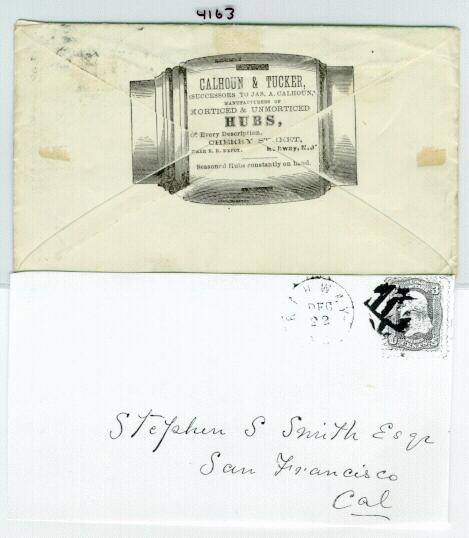 4163
CALHOUN & TUCKER,
(SUCCESSORS TO JAS. A. CALHOUN,)
MANUFACTURERS OF
MORTICED & UNMORTICED
HUBS,
Of Every Description.
CHERRY STREET,
NEAR R. R. DEPOT. Rahway, N.J.
Seasoned Hubs constantly on hand.
RAHWAY
DEC
22
3
Stephen S Smith Esqr
San Francisco
Cal